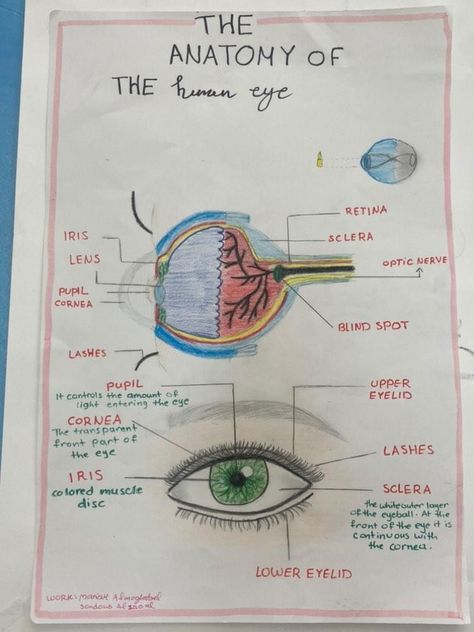 THE
ANATOMY OF
THE human eye
RETINA
SCLERA
OPTIC NERVE
BLIND SPOT
IRIS
LENS
PUPIL
CORNEA
LASHES
PUPIL
It controls the amount of
light entering the eye
CORNEA
The transparent
front part of
the eye
IRIS
colored muscle
disc
UPPER
EYELID
LASHES
SCLERA
the white outer layer
of the eyeball. At the
front of the eye it is
continuous with
the cornea.
LOWER EYELID
WORK: Mariam